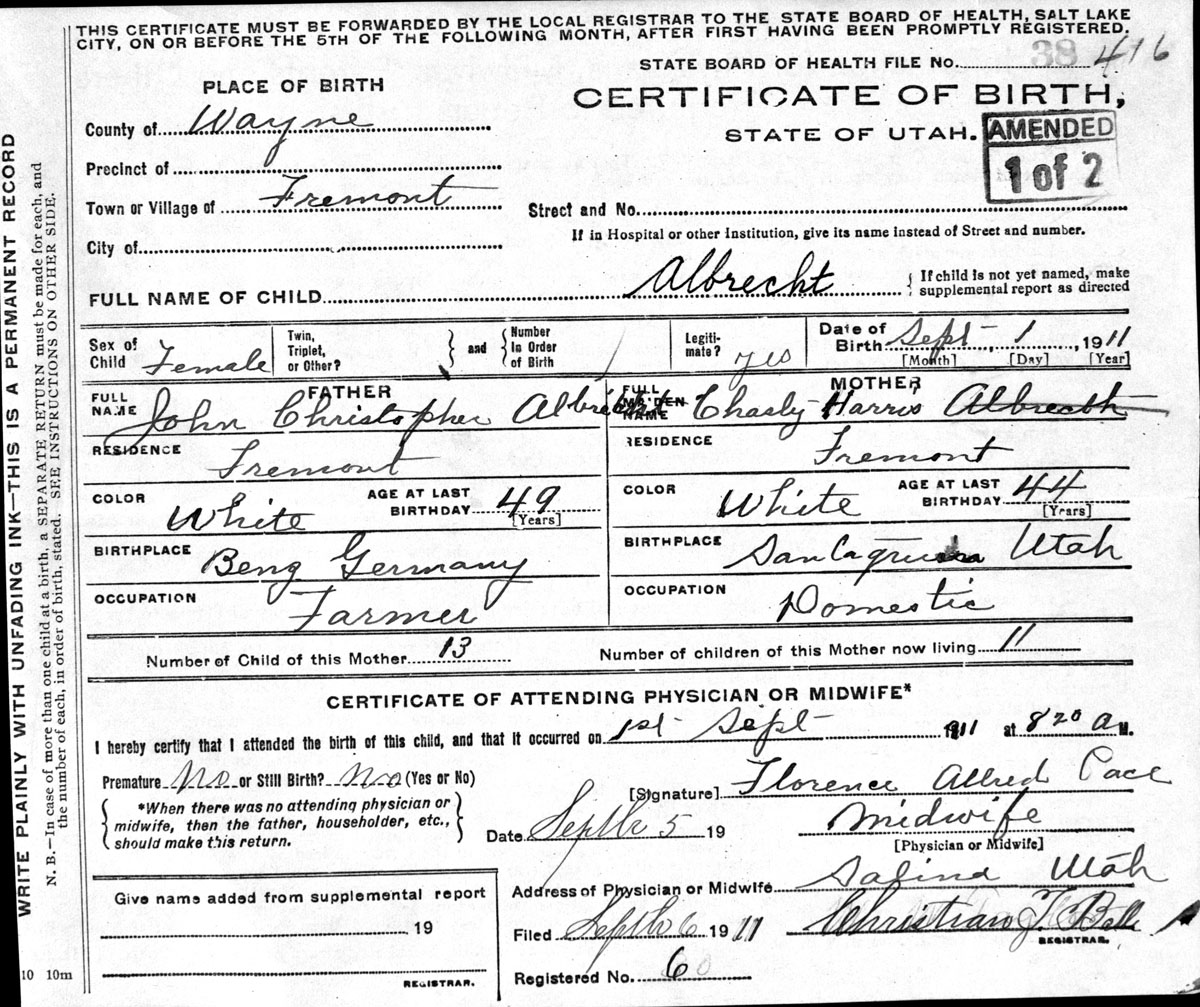 THIS CERTIFICATE MUST BE FORWARDED BY THE LOCAL REGISTRAR TO THE STATE BOARD OF HEALTH, SALT LAKE
CITY, ON OR BEFORE THE 5TH OF THE FOLLOWING MONTH, AFTER FIRST HAVING BEEN PROMPTLY REGISTERED.
STATE BOARD OF HEALTH FILE No. 38 416
PLACE OF BIRTH
CERTIFICATE OF BIRTH,
County of Wayne
STATE OF UTAH.
AMENDED
1 of 2
Precinct of
Town or Village of Fremont
Street and No.
City of
If in Hospital or other Institution, give its name instead of Street and number.
FULL NAME OF CHILD Albrecht
{ If child is not yet named, make
supplemental report as directed
Sex of Child Female
Twin, Triplet, or Other?
} and {
Number In Order of Birth
Legiti-mate? yes
Date of Birth Sept 1, 1911
[Month] [Day] [Year]
FATHER
FULL NAME John Christopher Albrecht
MOTHER
FULL MAIDEN NAME Chasly Harris Albrecht
RESIDENCE Fremont
RESIDENCE Fremont
COLOR White
AGE AT LAST BIRTHDAY 49
[Years]
COLOR White
AGE AT LAST BIRTHDAY 44
[Years]
BIRTHPLACE Beng Germany
BIRTHPLACE Utah
OCCUPATION Farmer
OCCUPATION Domestic
Number of Child of this Mother 13
Number of children of this Mother now living 11
CERTIFICATE OF ATTENDING PHYSICIAN OR MIDWIFE*
I hereby certify that I attended the birth of this child, and that it occurred on 1st Sept 1911 at 8 20 A M.
Premature No or Still Birth? No (Yes or No)
[Signature] Florence Allred Pace
{ *When there was no attending physician or
midwife, then the father, householder, etc., }
should make this return.
Date Septbr 5 19
Midwife
[Physician or Midwife]
Address of Physician or Midwife Salina Utah
Give name added from supplemental report
19
REGISTRAR.
Filed Septbr 6 1911
Christian
REGISTRAR.
Registered No. 6
WRITE PLAINLY WITH UNFADING INK—THIS IS A PERMANENT RECORD
N. B.—In case of more than one child at a birth, a SEPARATE RETURN must be made for each, and
the number of each, in order of birth, stated. SEE INSTRUCTIONS ON OTHER SIDE.
10 10m